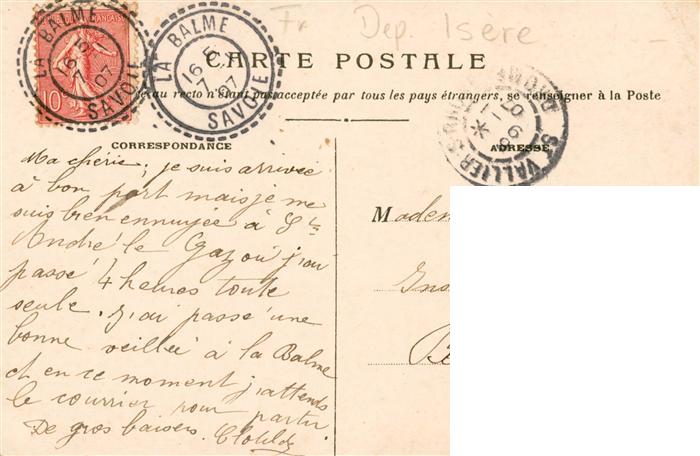 Fr Dep. Isère
LA BALME
SAVOIE
16 5
7 07
10
LA BALME
SAVOIE
16 5
7 07
CARTE POSTALE
e au recto n'étant pas acceptée par tous les pays étrangers, se renseigner à la Poste
CORRESPONDANCE
ADRESSE
St VALLIER
Ma chérie, je suis arrivée
à bon port mais je me
suis bien ennuyée à St
André le Gaz où j'ai
passé 4 heures toute
seule. J'ai passé une
bonne veillée à la Balme
et en ce moment j'attends
le courrier pour partir
De gros baisers. Clotilde
Madem
Ins